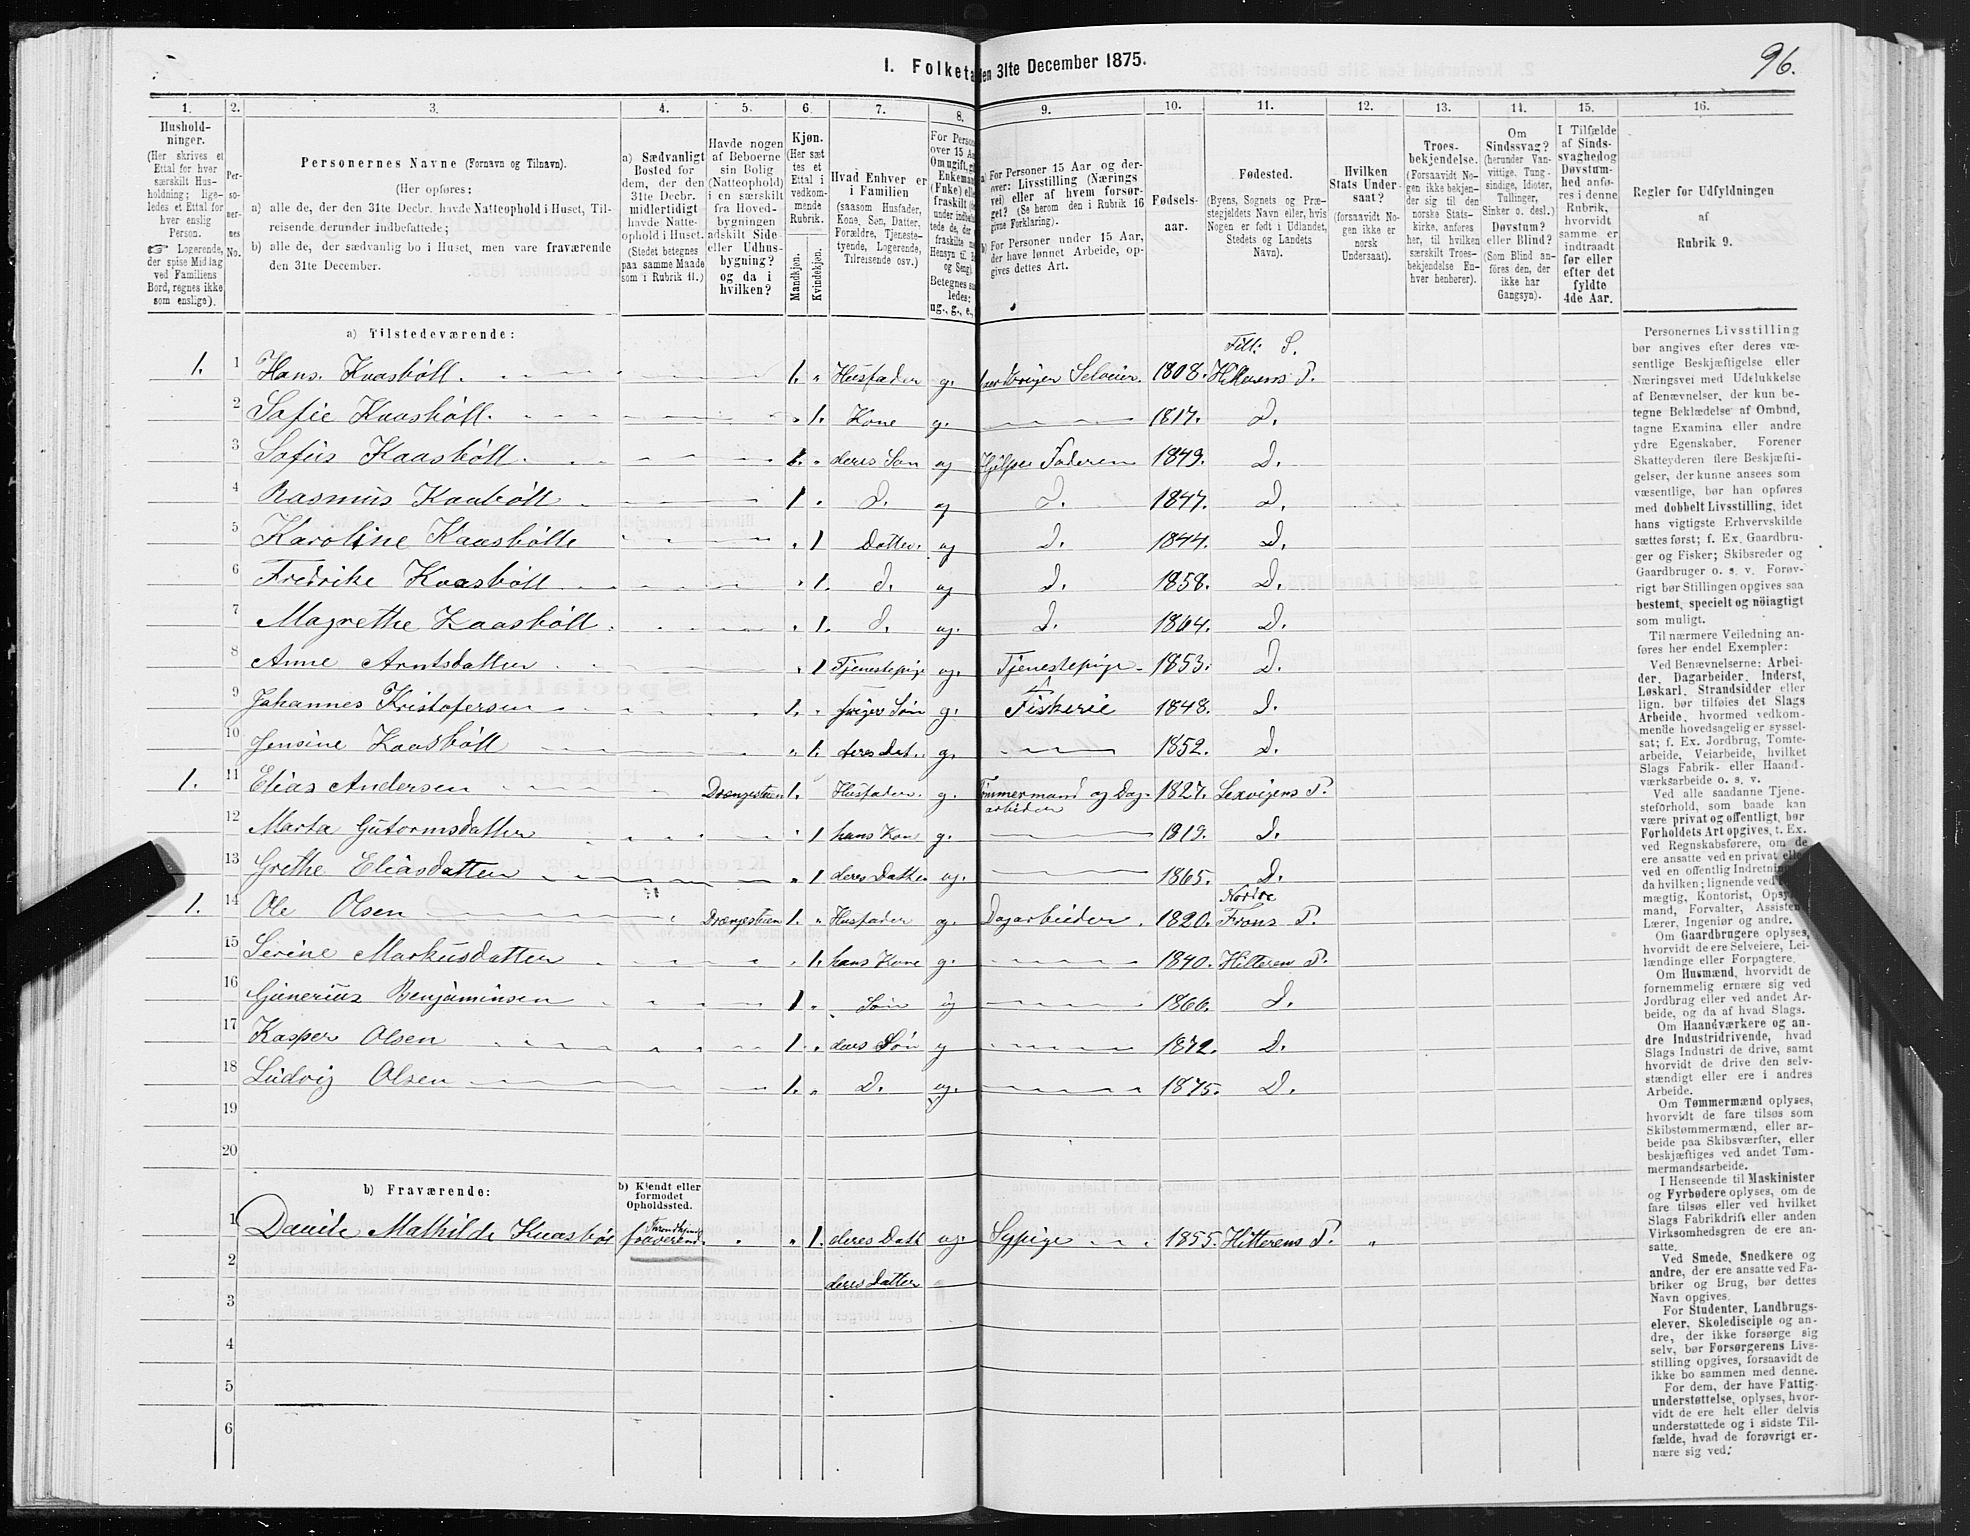 I. Folketa en 31te December 1875.
96.
1. 2. 3. 4. 5. 6. 7. 8. 9. 10. 11. 12. 13. 14. 15. 16.
Hushold-
ninger.
(Her skrives et
Ettal for hver
særskilt Hus-
holdning; lige-
ledes et Ettal for
hver enslig
Person.
☞ Logerende,
der spise Middag
ved Familiens
Bord, regnes ikke
som enslige).
Per-
so-
ner-
nes
No.
Personernes Navne (Fornavn og Tilnavn).
(Her opføres:
a) alle de, der den 31te Decbr. havde Natteophold i Huset, Til-
reisende derunder indbefattede;
b) alle de, der sædvanlig bo i Huset, men vare fraværende
den 31te December.
a) Sædvanligt
Bosted for
dem, der den
31te Decbr.
midlertidigt
havde Natte-
ophold i Huset.
(Stedet betegnes
paa samme Maade
som i Rubrik 11.)
Havde nogen
af Beboerne
sin Bolig
(Natteophold)
i en særskilt
fra Hoved-
bygningen
adskilt Side-
eller Udhus-
bygning?
og da i
hvilken?
Kjøn.
(Her sæt
tes et
Ettal i
vedkom-
mende
Rubrik.
Mandkjøn.
Kvindekjøn.
Hvad Enhver er
i Familien
(saasom Husfader,
Kone, Søn, Datter,
Forældre, Tjeneste-
tyende, Logerende,
Tilreisende osv.)
For Person
over 15 Aa
Om ugift, gi
Enkeman
(Fnke) elle
fraskilt
a) For Personer 15 Aar og der-
over: Livsstilling (Nærings
vei) eller af hvem forsør-
get? (Se herom den i Rubrik 16
givne Forklaring).
b) For Personer under 15 Aar,
der have lønnet Arbeide, op-
gives dettes Art.
Fødsels-
aar.
Fødested.
(Byens, Sognets og Præ-
stegjeldets Navn eller, hvis
Nogen er født i Udlandet,
Stedets og Landets
Navn).
Hvilken
Stats Under-
saat?
(forsaavidt No-
gen ikke er
norsk
Undersaat).
Troes-
bekjendelse.
(Forsaavidt No-
gen ikke bekjen-
der sig til den
norske Stats-
kirke, anføres
her, til hvilken
særskilt Troes-
bekjendelse En-
hver henhører).
Om
Sindssvag?
(herunder Van-
vittige, Tung-
sindige, Idioter,
Tullinger,
Sinker o. desl.)
Døvstum?
eller Blind?
(Som Blind an-
føres den, der
ikke har
Gangsyn).
I Tilfælde
af Sinds-
svaghed og
Døvstum-
hed anfø-
res i denne
Rubrik,
hvorvidt
samme er
indtraadt
før eller
efter det
fyldte
4de Aar.
Regler for Udfyldningen
af
Rubrik 9.
a) Tilstedeværende:
Fill: S.
1. 1 Hans. Kaasbøll. 1. Husfader g. Selveier. 1808. Hitterens P.
2 Safie Kaasbøll. 1. Kone g. 1817. D.
3 Safius Kaasbøll. 1. deres Søn ug Hjelper Faderen 1849. D.
4 Rasmus Kaabøll 1 D. ug D. 1847. D.
5 Karoline Kaasbølle 1 Datter. ug D. 1844. D.
6 Fredrike Kaasbøll 1. d. ug D. 1858. D.
7 Magrethe Kaasbøll. 1. d. ug. D. 1864. D.
8 Anne Arntsdatter 1 Tjenestepige ug. Tjenestepige 1853. D.
9 Johannes Kristofersen 1. Søn g. Fiskerie 1848. D.
10 Jensine Kaasbøll 1. deres Dat. g. 1852. D.
1. 11 Elias Andersen Drængestuen 1. Husfader. g. Tømmermand og Dag-
arbeider 1827. Lexvigens P.
12 Marta Gutormsdatter 1 hans Kon g. 1819. D.
13 Grethe Eliasdatter 1 deres Datter ug. 1865. D.
Nordre
1. 14 Ole Olsen Drængestuen 1. Husfader g. Dagarbeider. 1820. Frons P.
15 Serine Markusdatter 1. hans Kone g. 1840. Hitteren P.
16 Gunerius Benjaminsen 1 Søn ug 1866. D.
17 Kasper Olsen 1. deres Søn ug 1872. D.
18 Ludvig Olsen 1. D. ug. 1875. D.
19
20
b) Fraværende:
b) Kjendt eller
formodet
Opholdssted.
1 Davide Mathilde Kaasbøl Trondhjem
fraværend. 1. deres Datt ug. Sypige 1855. Hitterens P.
2 deres Datter
3
4
5
6
Personernes Livsstilling
bør angives efter deres væ-
sentlige Beskjæftigelse eller
Næringsvei med Udelukkelse
af Benævnelser, der kun be-
tegne Beklædelse af Ombud,
tagne Examina eller andre
ydre Egenskaber. Forener
Skatteyderen flere Beskjæfti-
gelser, der kunne ansees som
væsentlige, bør han opføres
med dobbelt Livsstilling, idet
hans vigtigste Erhvervskilde
sættes først; f. Ex. Gaardbru-
ger og Fisker; Skibsreder og
Gaardbruger o. s. v. Forøv-
rigt bør Stillingen opgives saa
bestemt, specielt og nöiagtigt
som muligt.
Til nærmere Veiledning an-
føres her endel Exempler:
Ved Benævnelserne: Arbei-
der, Dagarbeider, Inderst,
Løskarl, Strandsidder eller
lign. bør tilføies det Slags
Arbeide, hvormed vedkom-
mende hovedsagelig er syssel-
sat; f. Ex. Jordbrug, Tomte-
arbeide, Veiarbeide, hvilket
Slags Fabrik- eller Haand-
værksarbeide o. s. v.
Ved alle saadanne Tjene-
steforhold, som baade kan
være privat og offentligt, bør
Forholdets Art opgives, t. Ex.
ved Regnskabsførere, om de
ere ansatte ved en privat elle
ved en offentlig Indretning
da hvilken; lignende ved
mægtig, Kontorist, Opsy
mand, Forvalter, Assisten
Lærer, Ingeniør og andre.
Om Gaardbrugere oplyses,
hvorvidt de ere Selveiere, Lei-
lændinge eller Forpagtere.
Om Husmænd, hvorvidt de
fornemmelig ernære sig ved
Jordbrug eller ved andet Ar-
beide, og da af hvad Slags.
Om Haandværkere og an-
dre Industridrivende, hvad
Slags Industri de drive, samt
hvorvidt de drive den selv-
stændigt eller ere i andres
Arbeide.
Om Tømmermænd oplyses,
hvorvidt de fare tilsøs som
Skibstømmermænd, eller ar-
beide paa Skibsværfter, eller
beskjæftiges ved andet Tøm-
mermandsarbeide.
I Henseende til Maskinister
og Fyrbødere oplyses, om de
fare tilsøs eller ved hvilket
Slags Fabrikdrift eller anden
Virksomhedsgren de ere an-
satte.
Ved Smede, Snedkere og
andre, der ere ansatte ved Fa-
briker og Brug, bør dettes
Navn opgives.
For Studenter, Landbrugs-
elever, Skoledisciple og an-
dre, der ikke forsørge sig
selv, bør Forsørgerens Livs-
stilling opgives, forsaavidt de
ikke bo sammen med denne.
For dem, der have Fattig-
understøttelse, oplyses, hvor-
vidt de ere helt eller delvis
understøttede og i sidste Til-
fælde, hvad de forøvrigt er-
nære sig ved.